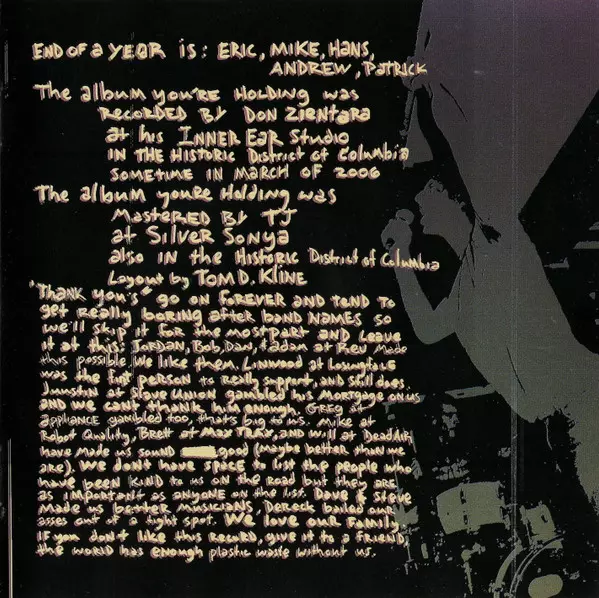 END OF a YEAR is: ERIC, MIKE, HANS,
ANDREW, PATRICK
The album you're Holding was
Recorded by Don Zientara
at his INNER EAR Studio
IN THE HISTORIC District of Columbia
SOMETIME IN MARCH OF 2006
The album youre Holding was
Mastered BY TJ
at Silver Sonya
also in the Historic District of Columbia
Layout by TOM D. Kline
"Thank you's" go on forever and tend to
get really boring after band names so
we'll skip it for the most part and leave
it at this: Jordan, Bob, Dan, + adam at Rev made
this possible. We like them. Linwood at Losingface
was the first person to really support, and still does.
at Slave Union gambled his mortgage on us
and we can't thank him enough. Greg at
appliance gambled too, that's big to us. Mike at
Robot Quality, Brett at Max Trax, and will at Dead Air
have made us sound good (maybe better than we
are). We don't have space to list the people who
have been kind to us on the road but they are
as important as anyone on the list. Dave & Steve
made us better musicians, Dereck bailed our
asses out of a tight spot. We love our family.
If you don't like this record, give it to a friend,
the world has enough plastic waste without us.